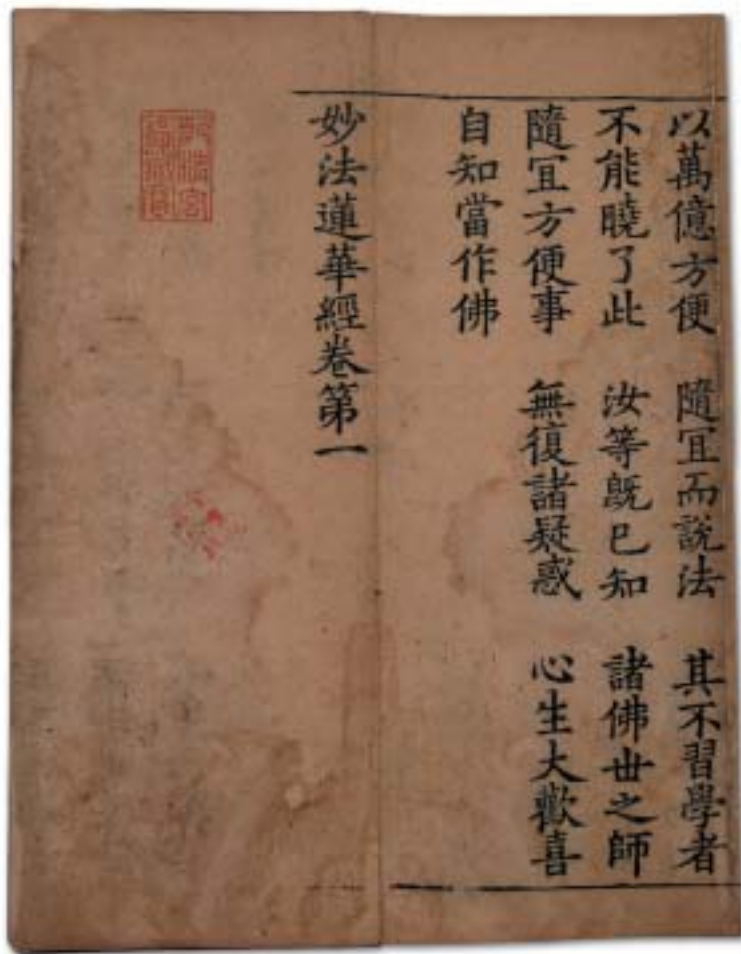 以萬億方便　隨宜而說法　其不習學者
不能曉了此　汝等旣已知　諸佛世之師
隨宜方便事　無復諸疑惑　心生大歡喜
自知當作佛
妙法蓮華經卷第一